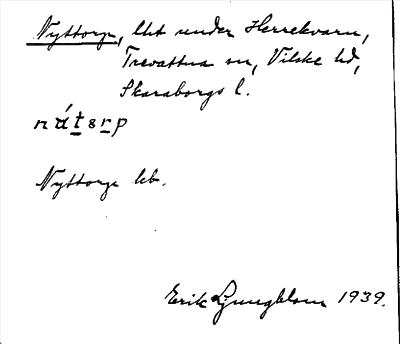 Nyttorp, lht under Herrekvarn,
Trevattna sn, Vilske hd,
Skaraborgs l.
nát8rp
Nyttorp kb.
Erik Ljungblom 1939.